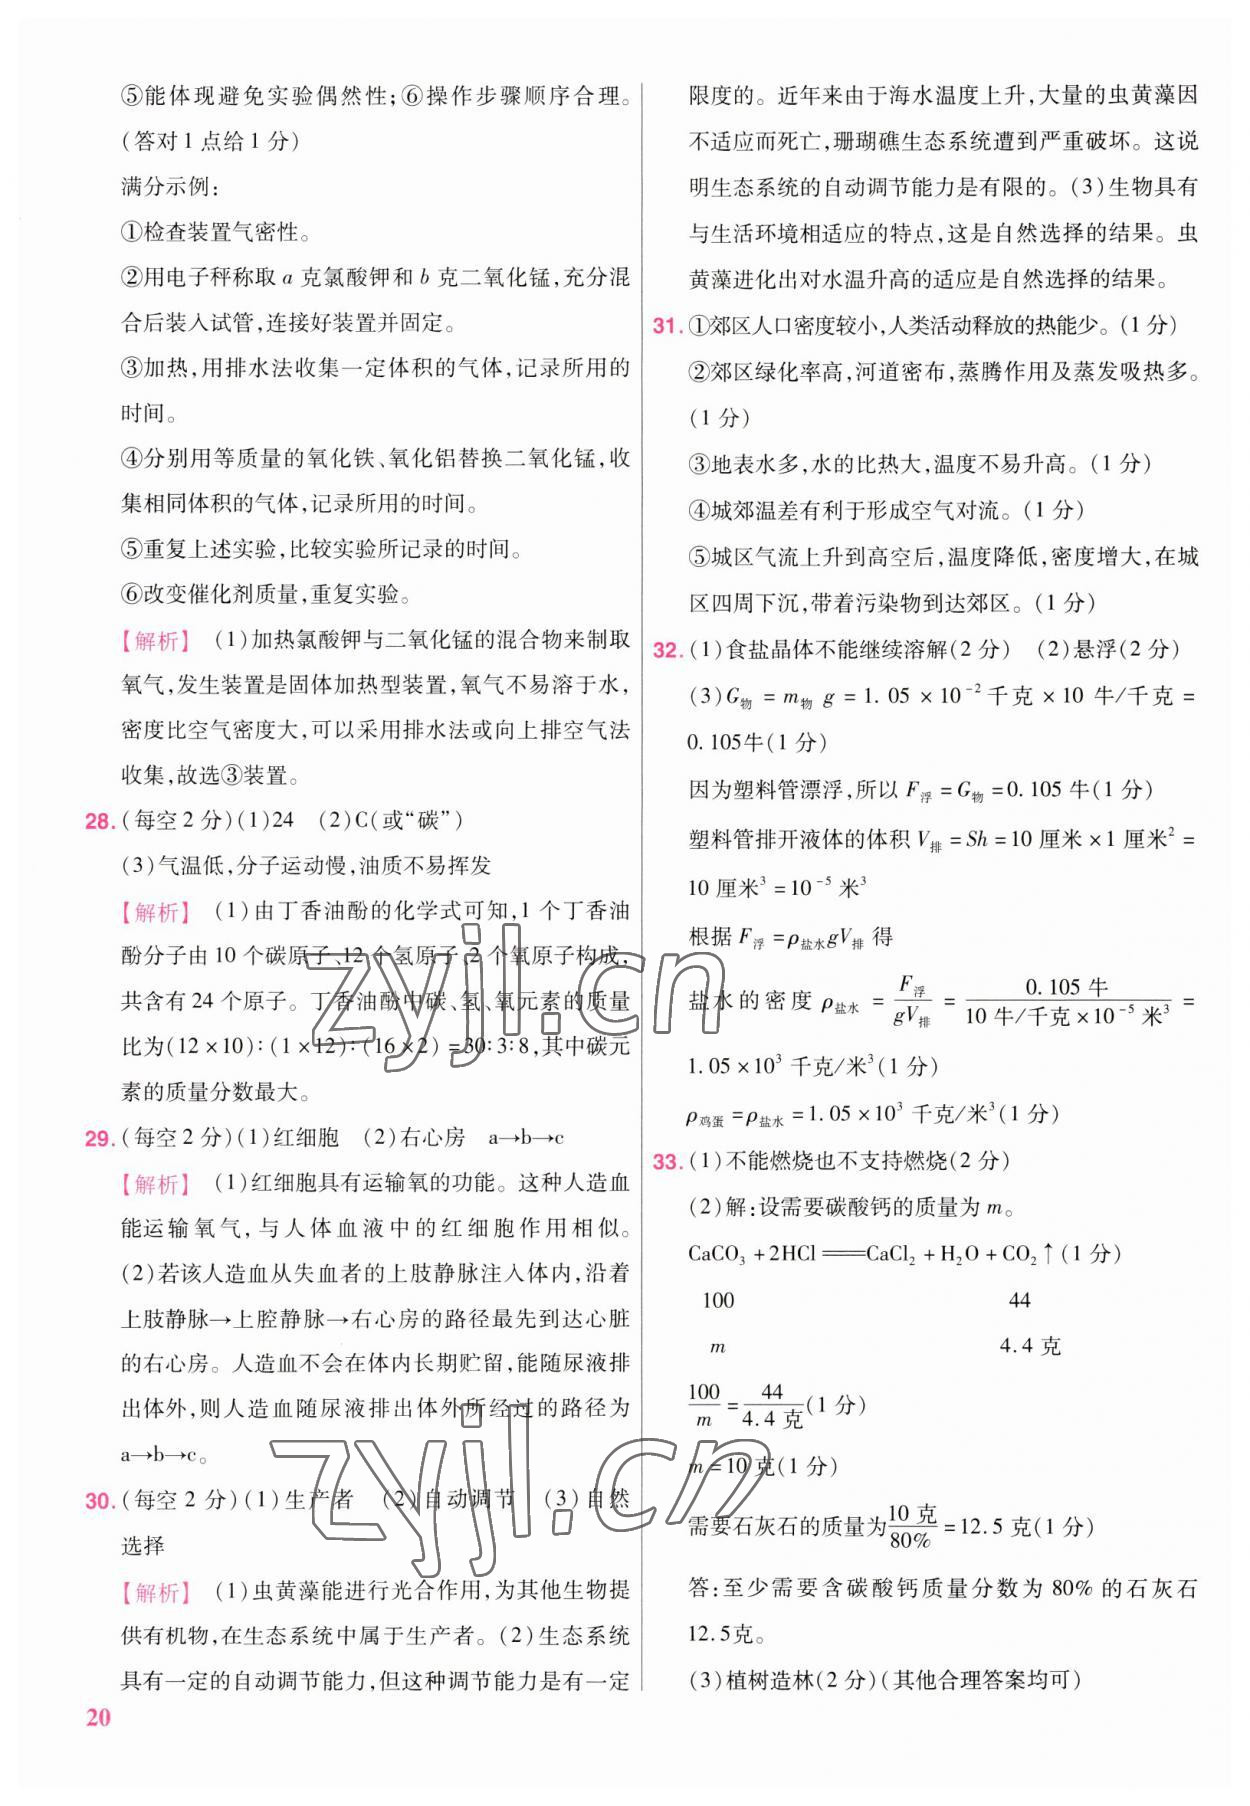 ⑤能体现避免实验偶然性;⑥操作步骤顺序合理。
(答对1点给1分)
满分示例:
①检查装置气密性。
②用电子秤称取 a 克氯酸钾和 b 克二氧化锰,充分混
合后装入试管,连接好装置并固定。
③加热,用排水法收集一定体积的气体,记录所用的
时间。
④分别用等质量的氧化铁、氧化铝替换二氧化锰,收
集相同体积的气体,记录所用的时间。
⑤重复上述实验,比较实验所记录的时间。
⑥改变催化剂质量,重复实验。
【解析】 (1)加热氯酸钾与二氧化锰的混合物来制取
氧气,发生装置是固体加热型装置,氧气不易溶于水,
密度比空气密度大,可以采用排水法或向上排空气法
收集,故选③装置。
28. (每空2分)(1)24 (2)C(或“碳”)
(3)气温低,分子运动慢,油质不易挥发
【解析】 (1)由丁香油酚的化学式可知,1个丁香油
酚分子由10个碳原子、12个氢原子、2个氧原子构成,
共含有24个原子。丁香油酚中碳、氢、氧元素的质量
比为(12×10):(1×12):(16×2)=30:3:8,其中碳元
素的质量分数最大。
29. (每空2分)(1)红细胞 (2)右心房 a→b→c
【解析】 (1)红细胞具有运输氧的功能。这种人造血
能运输氧气,与人体血液中的红细胞作用相似。
(2)若该人造血从失血者的上肢静脉注入体内,沿着
上肢静脉→上腔静脉→右心房的路径最先到达心脏
的右心房。人造血不会在体内长期贮留,能随尿液排
出体外,则人造血随尿液排出体外所经过的路径为
a→b→c。
30. (每空2分)(1)生产者 (2)自动调节 (3)自然
选择
【解析】 (1)虫黄藻能进行光合作用,为其他生物提
供有机物,在生态系统中属于生产者。(2)生态系统
具有一定的自动调节能力,但这种调节能力是有一定
20
限度的。近年来由于海水温度上升,大量的虫黄藻因
不适应而死亡,珊瑚礁生态系统遭到严重破坏。这说
明生态系统的自动调节能力是有限的。(3)生物具有
与生活环境相适应的特点,这是自然选择的结果。虫
黄藻进化出对水温升高的适应是自然选择的结果。
31. ①郊区人口密度较小,人类活动释放的热能少。(1分)
②郊区绿化率高,河道密布,蒸腾作用及蒸发吸热多。
(1分)
③地表水多,水的比热大,温度不易升高。(1分)
④城郊温差有利于形成空气对流。(1分)
⑤城区气流上升到高空后,温度降低,密度增大,在城
区四周下沉,带着污染物到达郊区。(1分)
32. (1)食盐晶体不能继续溶解(2分) (2)悬浮(2分)
(3)G物 = m物 g = 1.05×10⁻²千克×10 牛/千克 =
0.105牛(1分)
因为塑料管漂浮,所以 F浮 = G物 = 0.105 牛(1分)
塑料管排开液体的体积 V排 = Sh = 10 厘米×1 厘米² =
10 厘米³ = 10⁻⁵ 米³
根据 F浮 = ρ盐水gV排 得
盐水的密度 ρ盐水 = F浮/gV排 = 0.105 牛/10 牛/千克×10⁻⁵ 米³ =
1.05×10³ 千克/米³(1分)
ρ鸡蛋 = ρ盐水 = 1.05×10³ 千克/米³(1分)
33. (1)不能燃烧也不支持燃烧(2分)
(2)解:设需要碳酸钙的质量为 m。
CaCO₃ + 2HCl══CaCl₂ + H₂O + CO₂↑(1分)
100 44
m 4.4 克
100/m = 44/4.4 克(1分)
m = 10 克(1分)
需要石灰石的质量为10 克/80% = 12.5 克(1分)
答:至少需要含碳酸钙质量分数为80%的石灰石
12.5克。
(3)植树造林(2分)(其他合理答案均可)
zyjl.cn
zyjl.cn